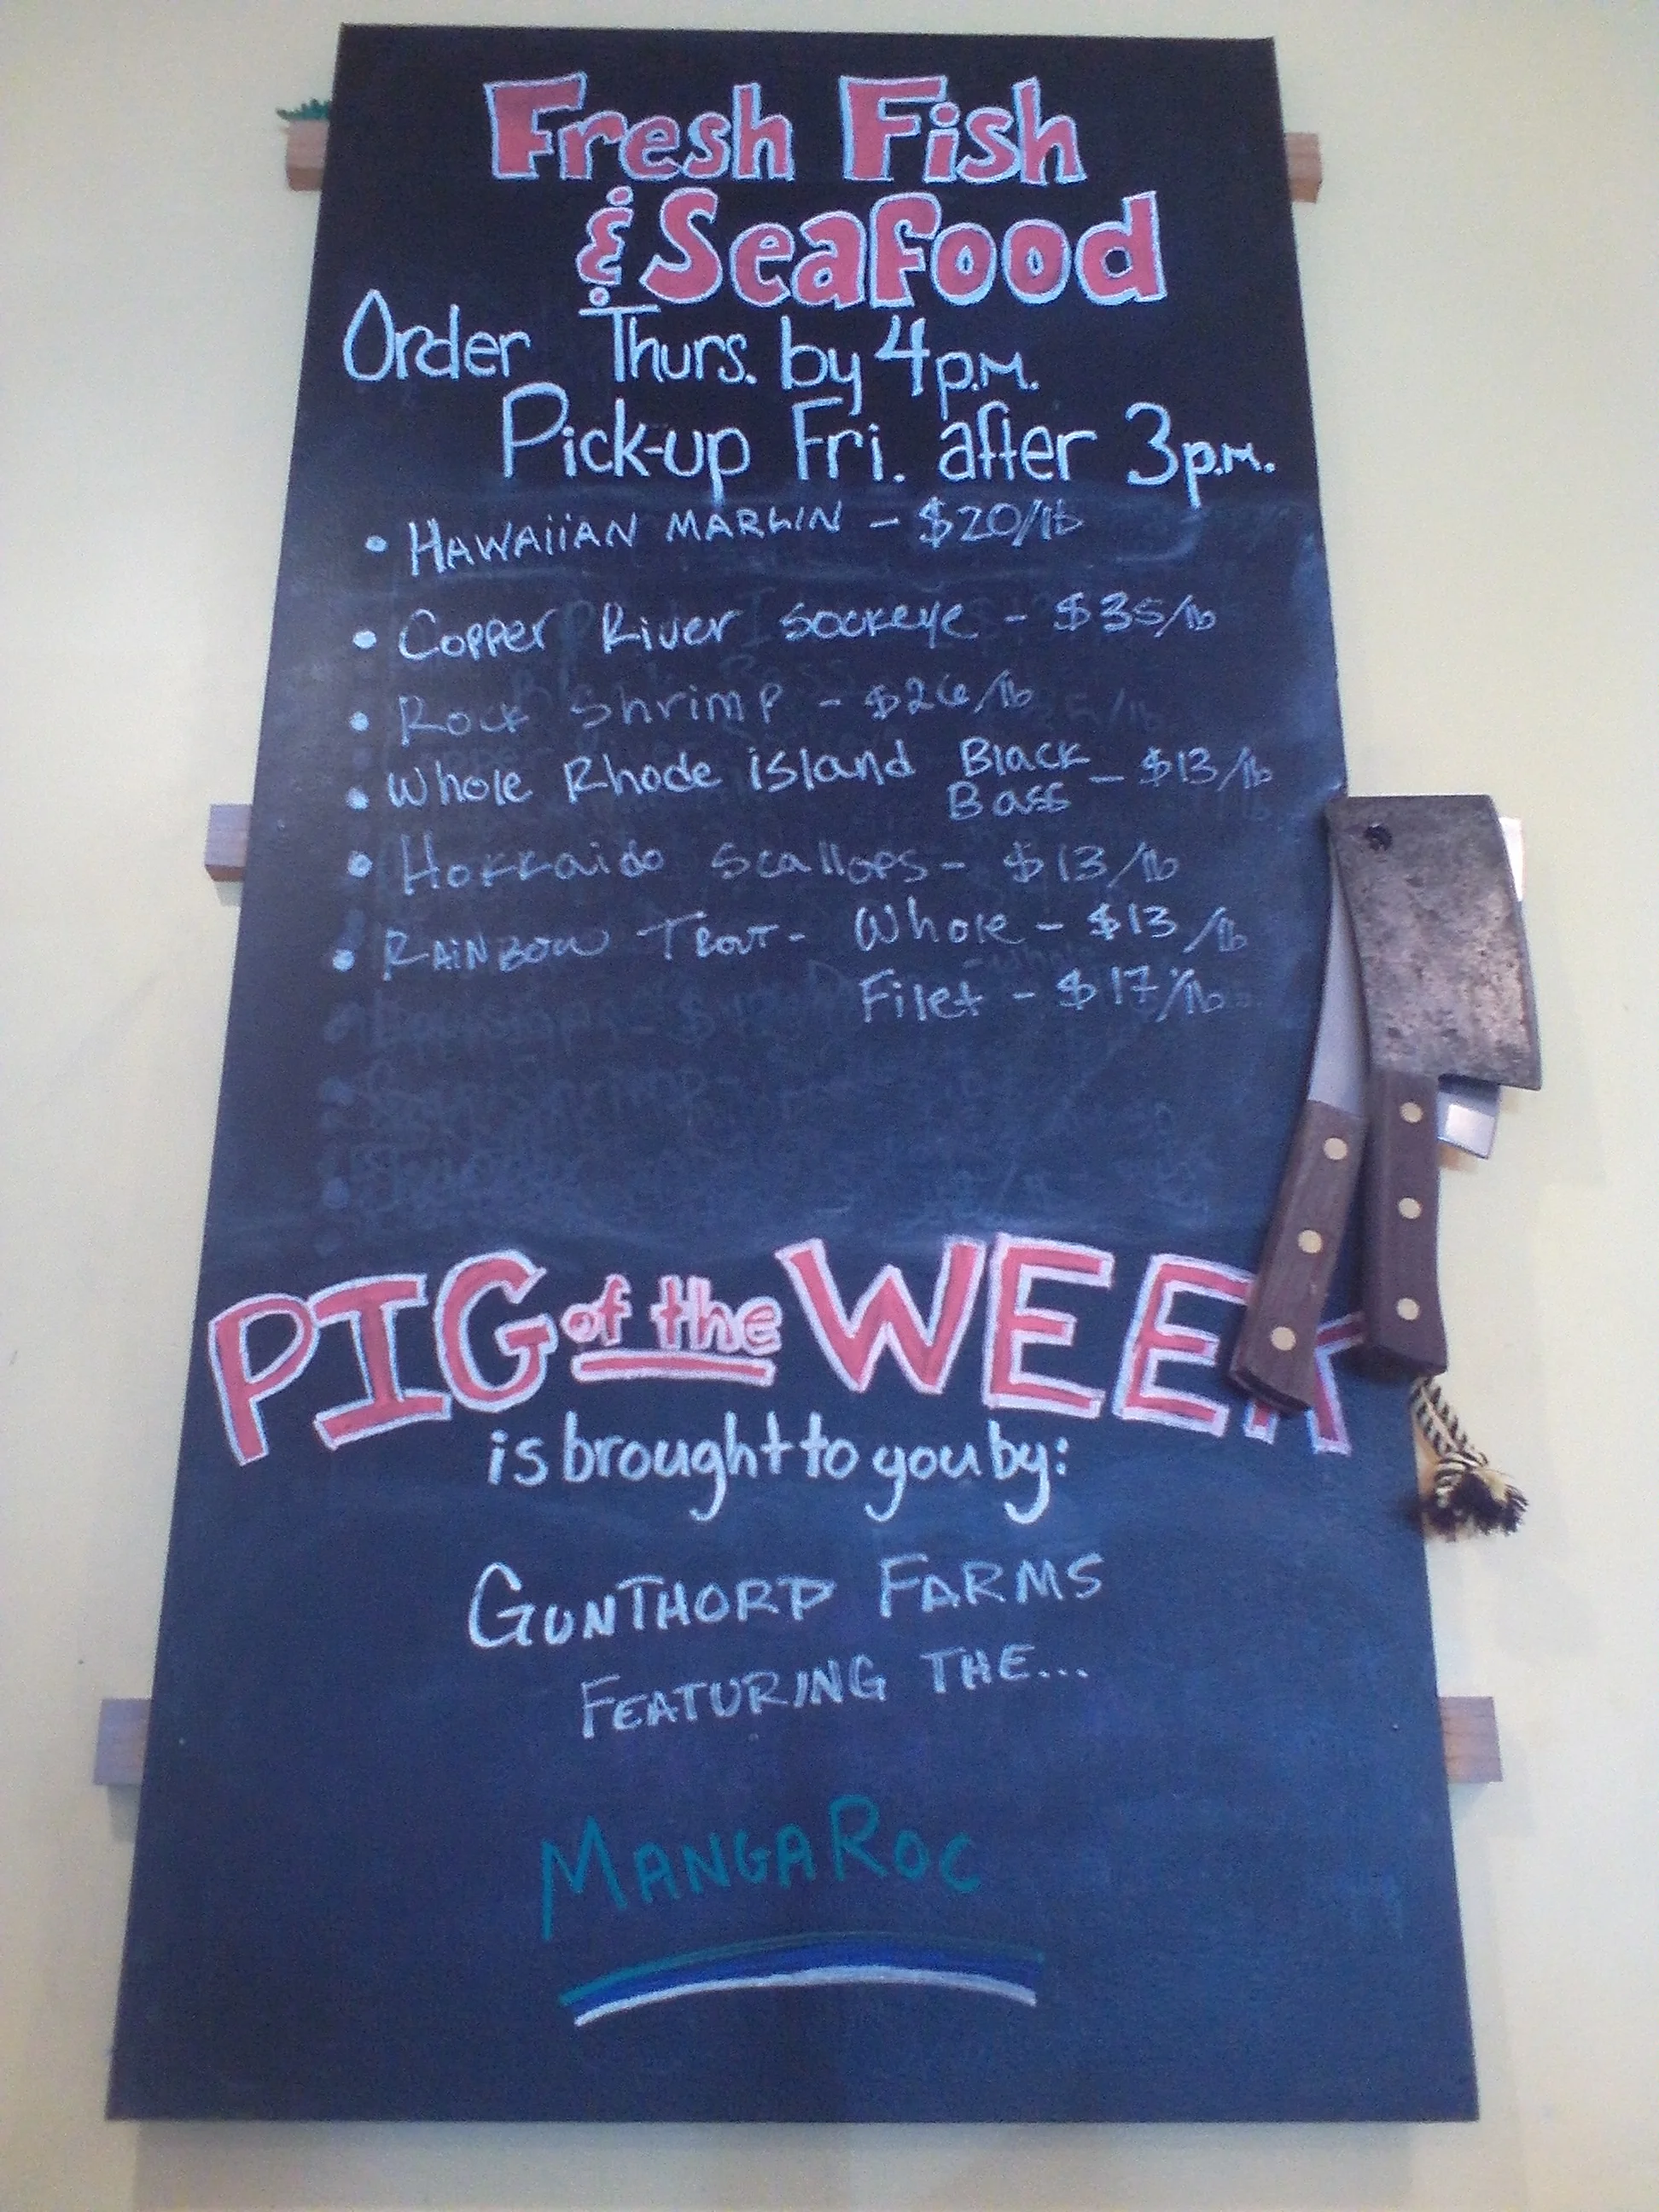 Fresh Fish
& Seafood
Order Thurs. by 4 p.m.
Pick-up Fri. after 3 p.m.
• HAWAiiAN MARLIN - $20/lb
• Copper River sockeye - $35/lb
• Rock Shrimp - $26/lb
• Whole Rhode island Black Bass - $13/lb
• Hokkaido Scallops - $13/lb
• RAiNBOW TROUT - Whole - $13/lb
Filet - $17/lb
PIG of the WEEK
is brought to you by:
GUNTHORP FARMS
FEATURING THE...
MANGAROC